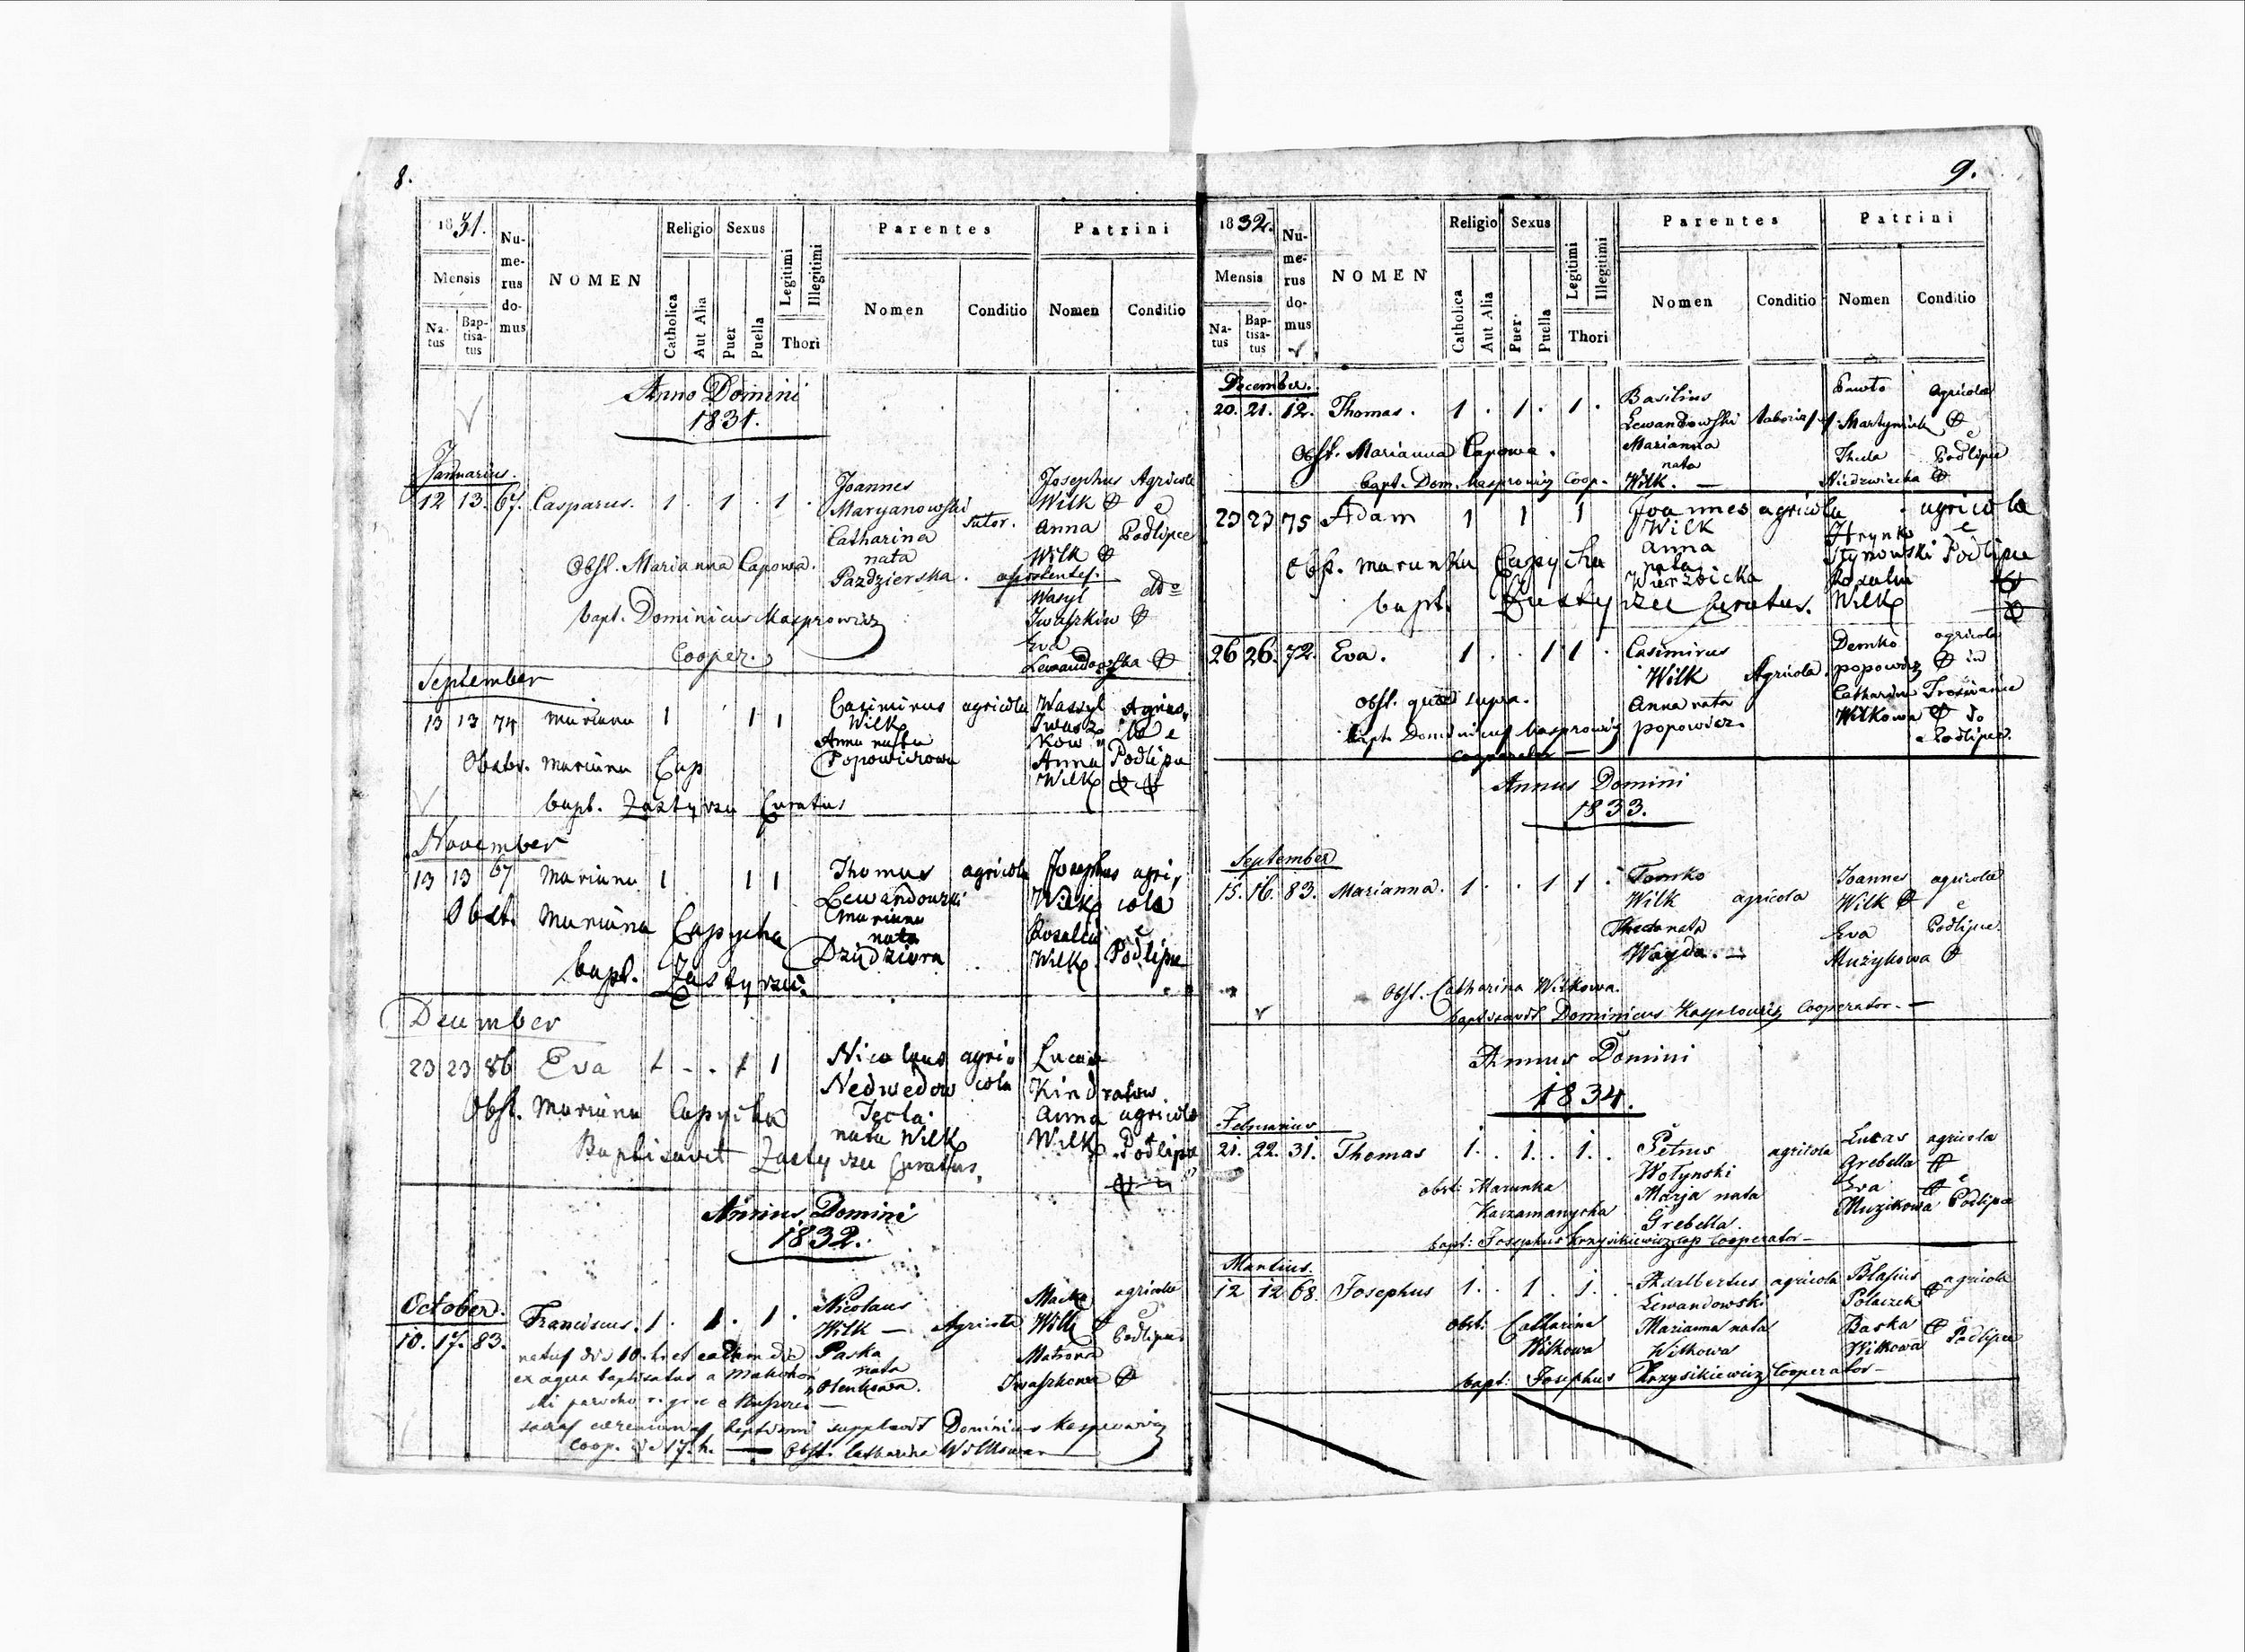 8.
1831.
Mensis
Na-
tus
Bap-
tisa-
tus
Nu-
me-
rus
do-
mus
NOMEN
Religio
Catholica
Aut Alia
Sexus
Puer
Puella
Legitimi
Illegitimi
Thori
Parentes
Nomen
Conditio
Patrini
Nomen
Conditio
Anno Domini
1831.
Januarius.
12 13. 67. Casparus. 1. 1. 1.
Joannes
Maryanowski
Catharina
nata
Pazdzierska.
Sutor.
Josephus Agricolae
Wilk
Anna
Wilk
è
Podlipce
Obst. Marianna Capowa.
assistentes.
Wasyl
Iwaszkow
Eva
Lewandowska
bapt. Dominicus Kasprowicz
Cooper.
September
13 13 74 Mariana 1 1 1
Casimirus agricola
Wilk
Anna nata
Popowiczowa
Wassyl
Iwasz
kow
Anna
Wilk
Podlipce
Obstr. Mariana Cap
bapt. Zastyrzec Curatus
November
13 13 67 Mariana 1 1 1
Thomas agricola
Lewandowski
Mariana
nata
Dziudziura
Josephus agri,
Wilk colae
Rosalia è
Wilk Podlipce
Obst. Mariana Capycha
bapt. Zastyrzec.
December
23 23 86 Eva 1 - . 1 1
Nicolaus agri
Nedwedow cola
Tecla
nata Wilk
Lucas
Kindratow.
Anna agricolae
Wilk Podlipce
Obst. Mariana Capycha
Baptisavit Zastyrzec Curatus.
Annus Domini
1832.
October.
10. 17. 83. Franciscus. 1. 1. 1.
Nicolaus
Wilk — Agricola
Paska
nata
Olenkowa.
Matrona
Iwaszkowa
agricolae
è
Podlipce
natus die 10. h. et eadem die
ex aqua baptisatus a
sacras ceremonias baptismi supplevit Dominicus Kasprowicz
Coop. die 17. h. — Obst. Catharina Wilkowa
9.
1832.
Mensis
Na-
tus
Bap-
tisa-
tus
Nu-
me-
rus
do-
mus
NOMEN
Religio
Catholica
Aut Alia
Sexus
Puer
Puella
Legitimi
Illegitimi
Thori
Parentes
Nomen
Conditio
Patrini
Nomen
Conditio
December.
20. 21. 12. Thomas. 1. 1. 1.
Basilius
Lewandowski
Marianna
nata
Wilk. —
Martyniuk
Thecla
Niedzwiecka
agricolae
è
Podlipce
Obst. Marianna Capowa.
bapt. Dom. Kasprowicz Coop.
23 23 75 Adam 1 1 1
Joannes agricola
Wilk
Anna
nata
Wierzbicka
Hrynko
Rozalia
Wilk
agricolae
è
Podlipce
Obst. Marunka Capycha
bapt. Zastyrzec Curatus.
26 26. 72. Eva. 1. . 1 1.
Casimirus
Wilk Agricola.
Anna nata
popowicz.
Demko
popowicz
Catharina
Wilkowa
agricolae
in
Podlipce.
Obst. quae supra.
bapt. Dominicus Kasprowicz
cooperator —
Annus Domini
1833.
September
15. 16. 83. Marianna. 1. . 1 1.
Tomko
Wilk agricola
Thecla nata
Wayda. —
Joannes
Wilk
Eva
Muzykowa
agricolae
è
Podlipce.
Obst. Catharina Wilkowa.
baptisavit Dominicus Kasprowicz Cooperator. —
Annus Domini
1834.
Februarius
21. 22. 31. Thomas 1. . 1. . 1. .
Petrus agricola
Wołynski
Marja nata
Grebella.
Lucas
Grebella
Eva
Muzikowa
agricolae
è
Podlipce
obst: Marunka
Kaczamanycha
bapt: Josephus Krzysikiewicz Cooperator —
Martius.
12 12 68. Josephus 1. . 1. 1. .
Adalbertus agricola
Lewandowski
Marianna nata
Wilkowa
Blasius
Polaczek
Baska
Wilkowa
agricolae
è
Podlipce
obst: Catharina
Wilkowa
bapt: Josephus Krzysikiewicz Cooperator —